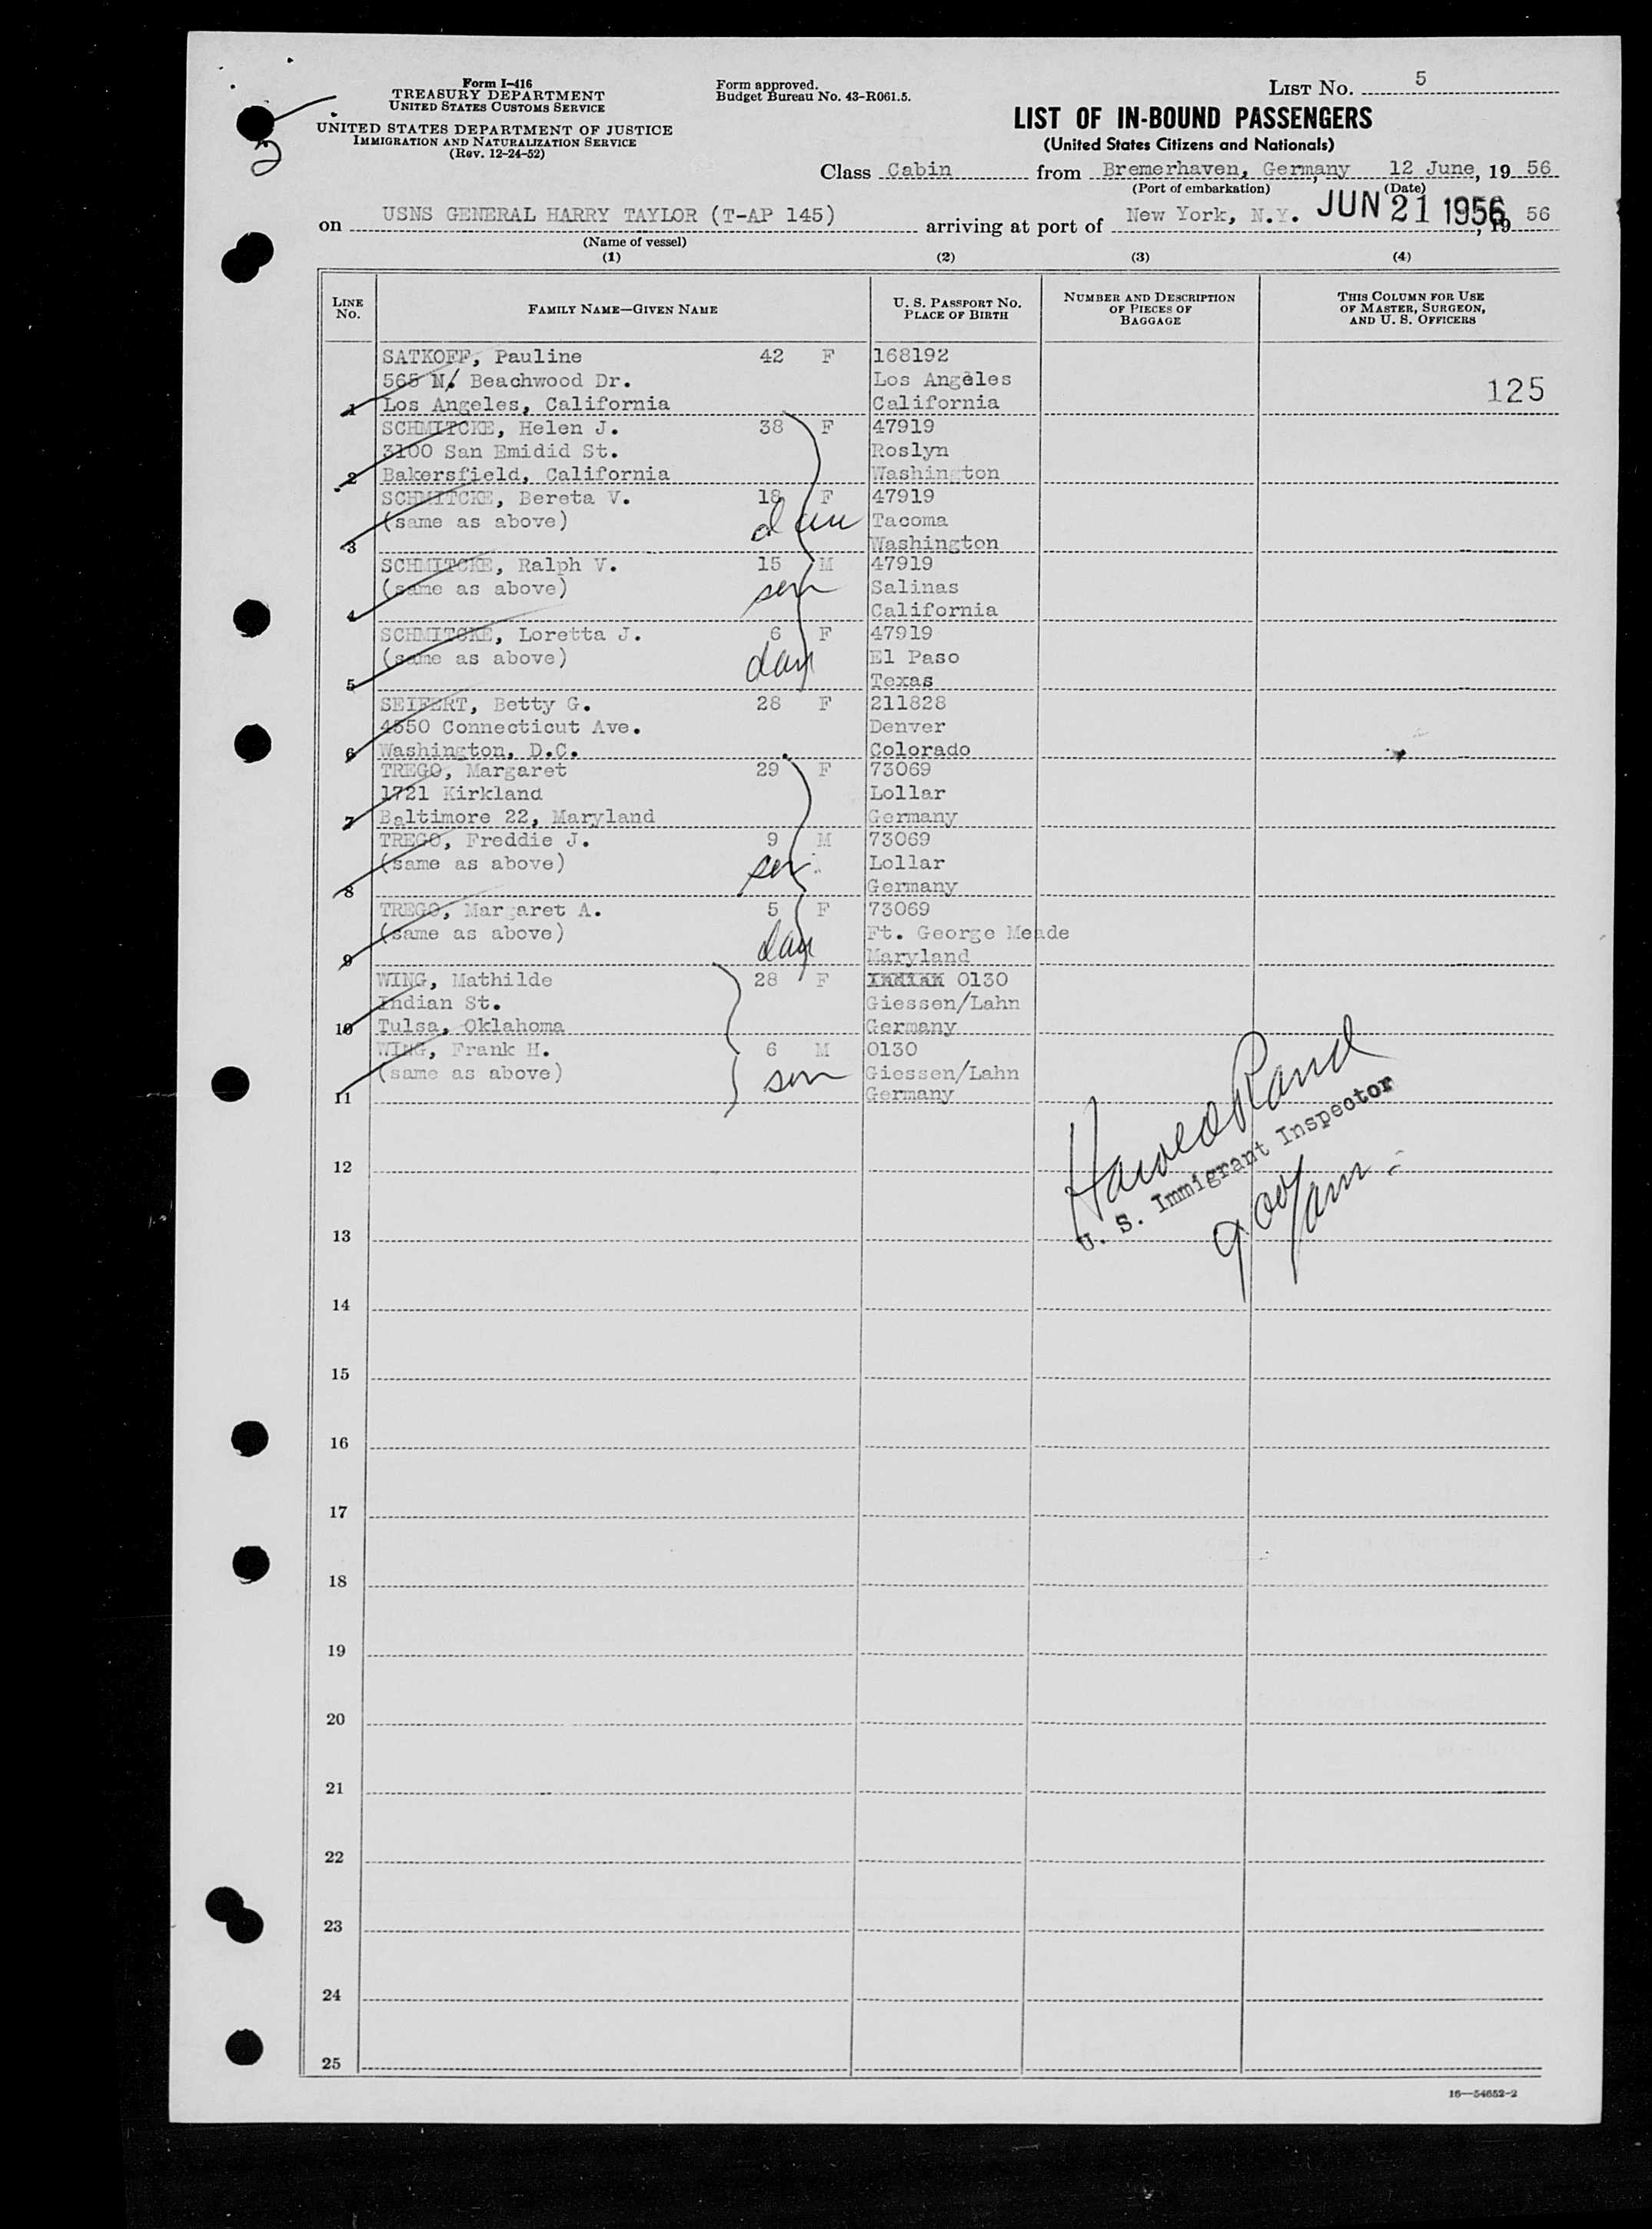 Form I-416
TREASURY DEPARTMENT
UNITED STATES CUSTOMS SERVICE
UNITED STATES DEPARTMENT OF JUSTICE
IMMIGRATION AND NATURALIZATION SERVICE
(Rev. 12-24-52)
Form approved.
Budget Bureau No. 43-R061.5.
LIST No. 5
LIST OF IN-BOUND PASSENGERS
(United States Citizens and Nationals)
Class Cabin from Bremerhaven, Germany 12 June, 19 56
(Port of embarkation) (Date)
on USNS GENERAL HARRY TAYLOR (T-AP 145) arriving at port of New York, N.Y. JUN 21 1956, 19 56
(Name of vessel)
(1) (2) (3) (4)
LINE No. FAMILY NAME—GIVEN NAME U. S. PASSPORT No. PLACE OF BIRTH NUMBER AND DESCRIPTION OF PIECES OF BAGGAGE THIS COLUMN FOR USE OF MASTER, SURGEON, AND U. S. OFFICERS
SATKOFF, Pauline 42 F 168192
565 N. Beachwood Dr. Los Angeles 125
1 Los Angeles, California California
SCHMITCKE, Helen J. 38 F 47919
3100 San Emidid St. Roslyn
2 Bakersfield, California Washington
SCHMITCKE, Bereta V. 18 F 47919
(same as above) dau Tacoma
3 Washington
SCHMITCKE, Ralph V. 15 M 47919
(same as above) son Salinas
4 California
SCHMITCKE, Loretta J. 6 F 47919
(same as above) dau El Paso
5 Texas
SEIFERT, Betty G. 28 F 211828
4550 Connecticut Ave. Denver
6 Washington, D.C. Colorado
TREGO, Margaret 29 F 73069
1721 Kirkland Lollar
7 Baltimore 22, Maryland Germany
TREGO, Freddie J. 9 M 73069
(same as above) son Lollar
8 Germany
TREGO, Margaret A. 5 F 73069
(same as above) dau Ft. George Meade
9 Maryland
WING, Mathilde 28 F 0130
Indian St. Giessen/Lahn
10 Tulsa, Oklahoma Germany
WING, Frank H. 6 M 0130
(same as above) son Giessen/Lahn
11 Germany
Harold Rand
U. S. Immigrant Inspector
9 00/am
12
13
14
15
16
17
18
19
20
21
22
23
24
25
16—54652-2